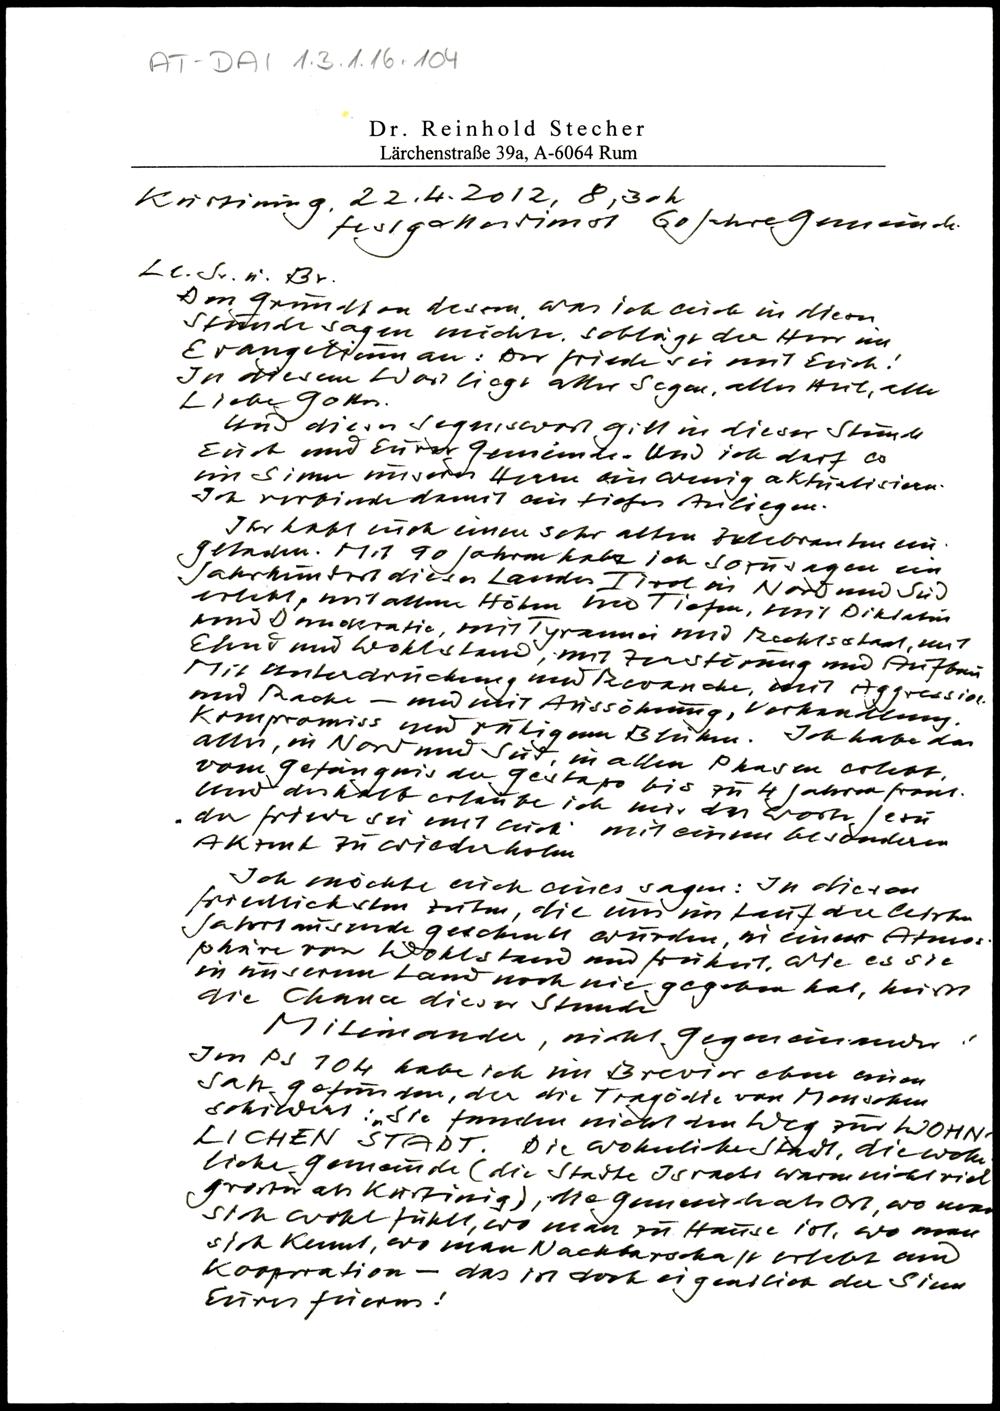 AT-DAI 1.3.1.16.104
Dr. Reinhold Stecher
Lärchenstraße 39a, A-6064 Rum
Kurtinig, 22.4.2012, 8,30h
Festgottesdienst 60 Jahre Gemeinde
Lb. Sr. u. Br.
Den Grundton dessen, was ich euch in dieser
Stunde sagen möchte, schlägt der Herr im
Evangelium an: Der Friede sei mit Euch!
In diesem Wort liegt aller Segen, alles Heil, alle
Liebe Gottes.
Und dieses Segenswort gilt in dieser Stunde
Euch und Eurer Gemeinde. Und ich darf es
im Sinne unseres Herrn ein wenig aktualisieren.
Ich verbinde damit ein tiefes Anliegen.
Ihr habt euch einen sehr alten Zelebranten ein-
geladen. Mit 90 Jahren habe ich sozusagen ein
Jahrhundert dieses Landes Tirol in Nord und Süd
erlebt, mit allen Höhen und Tiefen, mit Diktatur
und Demokratie, mit Tyrannei und Rechtsstaat, mit
Elend und Wohlstand, mit Zerstörung und Aufbau
Mit Unterdrückung und Revanche, mit Aggression
und Rache – und mit Aussöhnung, Verhandlung,
Kompromiss und ruhigem Blühen. Ich habe das
alles, in Nord und Süd, in allen Phasen erlebt,
vom Gefängnis der Gestapo bis zu 4 Jahren Front.
Und deshalb erlaube ich mir das Wort Jesu
"der Friede sei mit euch" mit einem besonderen
Akzent zu wiederholen
Ich möchte euch eines sagen: In diesen
friedlichsten Zeiten, die uns im Lauf der letzten
Jahrtausende geschenkt wurden, in einer Atmos-
phäre von Wohlstand und Freiheit, wie es sie
in unserem Land noch nie gegeben hat, heisst
die Chance dieser Stunde
Miteinander, nicht Gegeneinander!
Im Ps 104 habe ich im Brevier eben einen
Satz gefunden, der die Tragödie von Menschen
schildert: „Sie fanden nicht den Weg zur WOHN-
LICHEN STADT. Die wohnliche Stadt, die wohn-
liche Gemeinde (die Städte Israels waren nicht viel
grösser als Kurtinig), die Gemeinde als Ort, wo man
sich wohl fühlt, wo man zu Hause ist, wo man
sich kennt, wo man Nachbarschaft erlebt und
Kooperation – das ist doch eigentlich der Sinn
Eures Feierns!